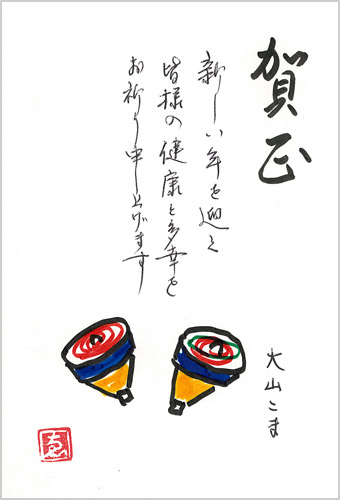 賀正
新しい年を迎え
皆様の健康と多幸を
お祈り申し上げます
大山こま